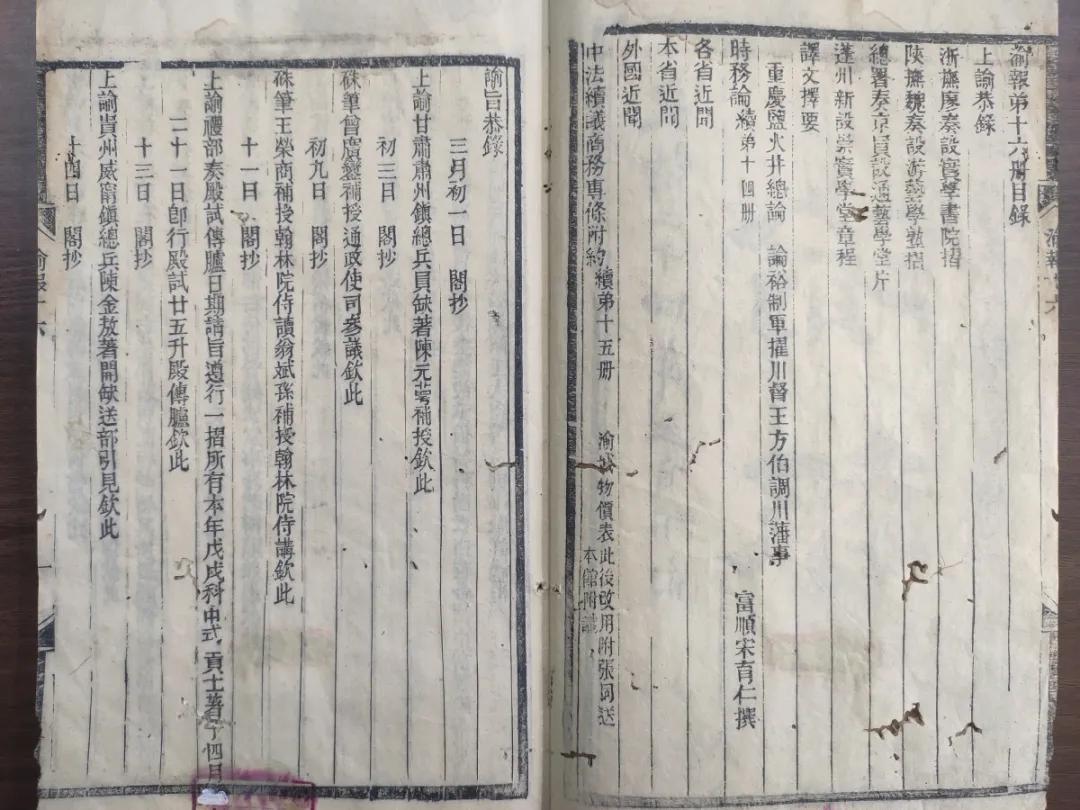 渝報第十六册目錄
上諭恭錄
浙撫廖奏設實學書院摺
陝撫魏奏設游藝學塾摺
總署奏京員設通藝學堂片
蓬州新設崇實學堂章程
譯文擇要
重慶鹽火井總論 論裕制軍擢川督王方伯調川藩事
時務論續第十四册 富順宋育仁撰
各省近聞
本省近聞
外國近聞
中法續議商務專條附約續第十五册 渝城物價表此後改用附張同送
本館附
渝報十六
諭旨恭錄
三月初一日 閣抄
上諭甘肅肅州鎮總兵員缺著陳元萼補授欽此
初三日 閣抄
硃筆曾廣鑾補授通政使司參議欽此
初九日 閣抄
硃筆王榮商補授翰林院侍讀翁斌孫補授翰林院侍講欽此
十一日 閣抄
上諭禮部奏殿試傳臚日期請旨遵行一摺所有本年戊戌科中式貢士著于四月
二十一日卽行殿試廿五升殿傳臚欽此
十三日 閣抄
上諭貴州威甯鎮總兵陳金敖著開缺送部引見欽此
十四日 閣抄
渝報十六